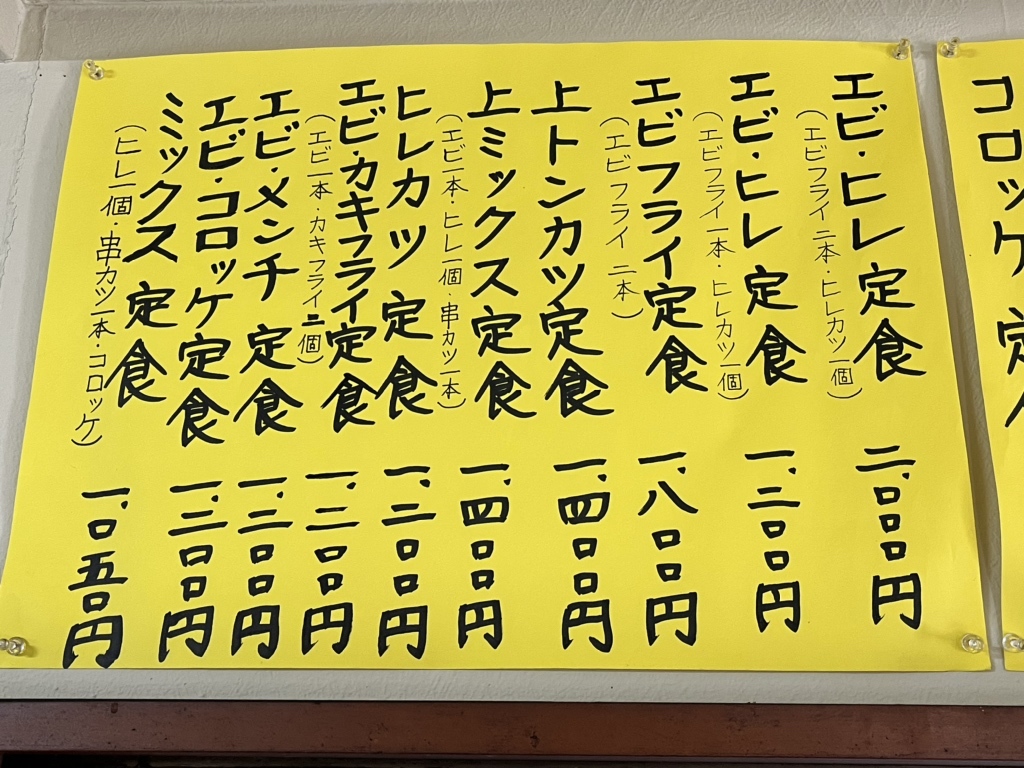 コロッケ定
エビ・ヒレ定食 二、〇〇〇円
(エビフライ二本・ヒレカツ一個)
エビ・ヒレ定食 一、二〇〇円
(エビフライ一本・ヒレカツ一個)
エビフライ定食 一、八〇〇円
(エビフライ二本)
上トンカツ定食 一、四〇〇円
上ミックス定食 一、四〇〇円
(エビ一本・ヒレ一個・串カツ一本)
ヒレカツ定食 一、二〇〇円
エビ・カキフライ定食 一、二〇〇円
(エビ一本・カキフライ二個)
エビ・メンチ定食 一、二〇〇円
エビ・コロッケ定食 一、二〇〇円
ミックス定食 一、〇五〇円
(ヒレ一個・串カツ一本・コロッケ)